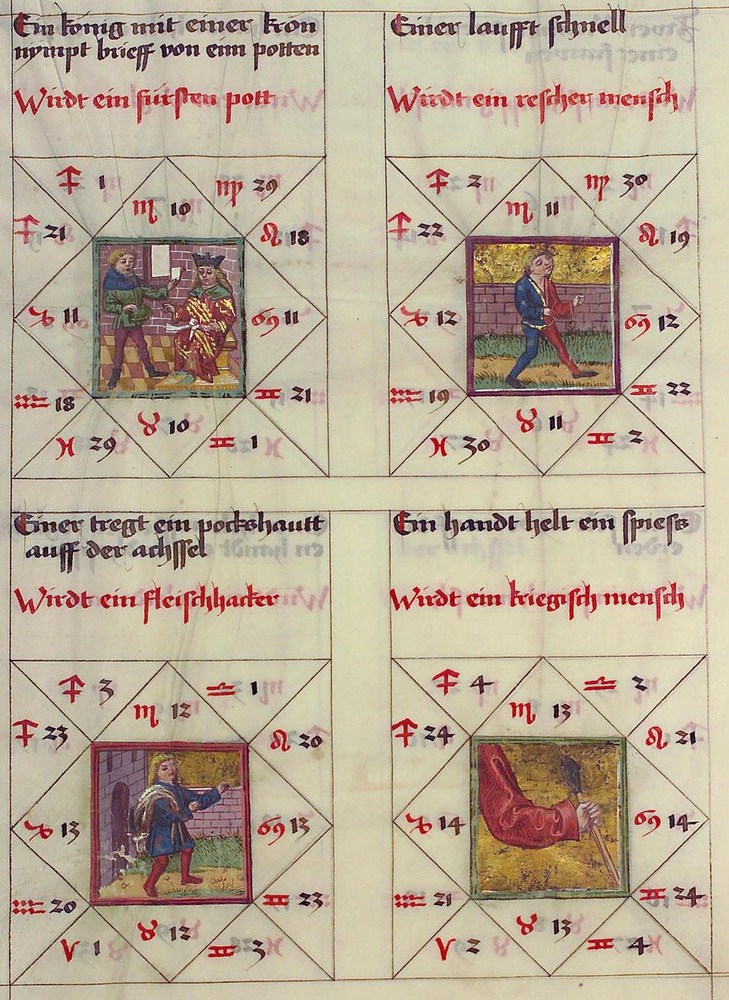 Ein konig mit einer kron
nympt brieff von eim potten
Wirdt ein fursten pott
♐ 1
♏ 10
♍ 29
♐ 21
♌ 18
♑ 11
♋ 11
♒ 18
♊ 21
♓ 29
♉ 10
♊ 1
Einer laufft schnell
Wirdt ein rescher mensch
♐ 2
♏ 11
♍ 30
♐ 22
♌ 19
♑ 12
♋ 12
♒ 19
♊ 22
♓ 30
♉ 11
♊ 2
Einer tregt ein pockshautt
auff der achssel
Wirdt ein fleischhacker
♐ 3
♏ 12
♎ 1
♐ 23
♌ 20
♑ 13
♋ 13
♒ 20
♊ 23
♈ 1
♉ 12
♊ 3
Ein handt helt ein spiess
Wirdt ein kriegisch mensch
♐ 4
♏ 13
♎ 2
♐ 24
♌ 21
♑ 14
♋ 14
♒ 21
♊ 24
♈ 2
♉ 13
♊ 4